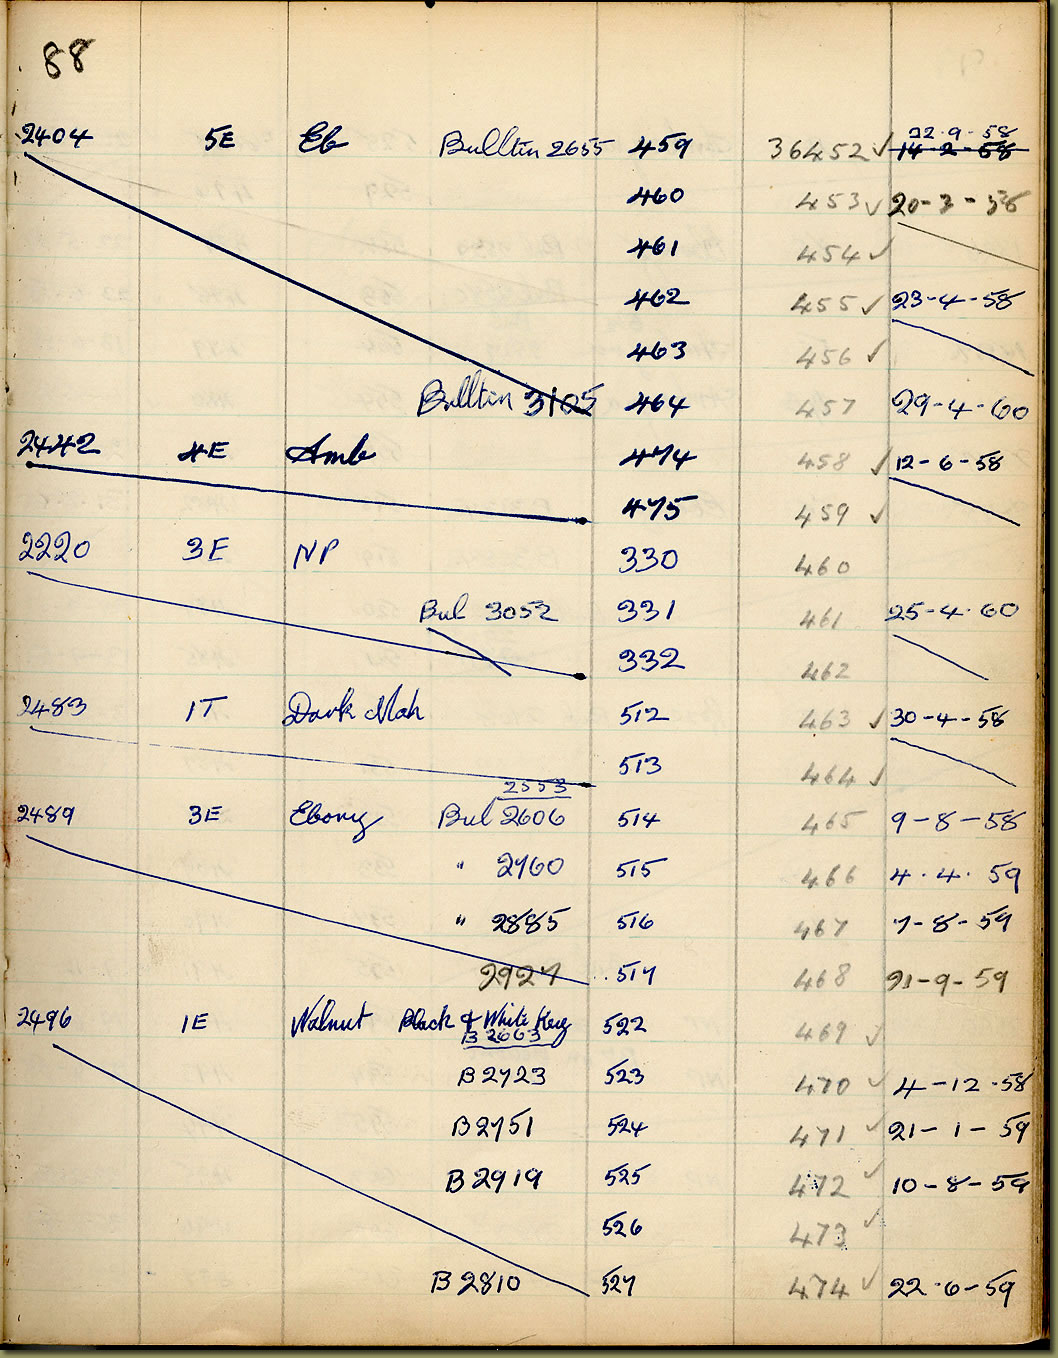 88
2404 5E Eb Bulltin 2655 459 36452 ✓ 22.9-58
14-2-58
460 453 ✓ 20-3-58
461 454 ✓
462 455 ✓ 23-4-58
463 456 ✓
Bulltin 3105 464 457 29-4-60
2442 4E Amb 474 458 ✓ 12-6-58
475 459 ✓
2220 3E NP 330 460
Bul 3052 331 461 25-4-60
332 462
2483 1T Dark Mah 512 463 ✓ 30-4-58
513 464 ✓
2553
2489 3E Ebony Bul 2606 514 465 9-8-58
" 2760 515 466 4.4.59
" 2885 516 467 7-8-59
2927 517 468 21-9-59
2496 1E Walnut Black & White Key 522 469 ✓
B 2663
B 2723 523 470 ✓ 4-12-58
B 2751 524 471 ✓ 21-1-59
B 2919 525 472 ✓ 10-8-59
526 473 ✓
B 2810 527 474 ✓ 22-6-59